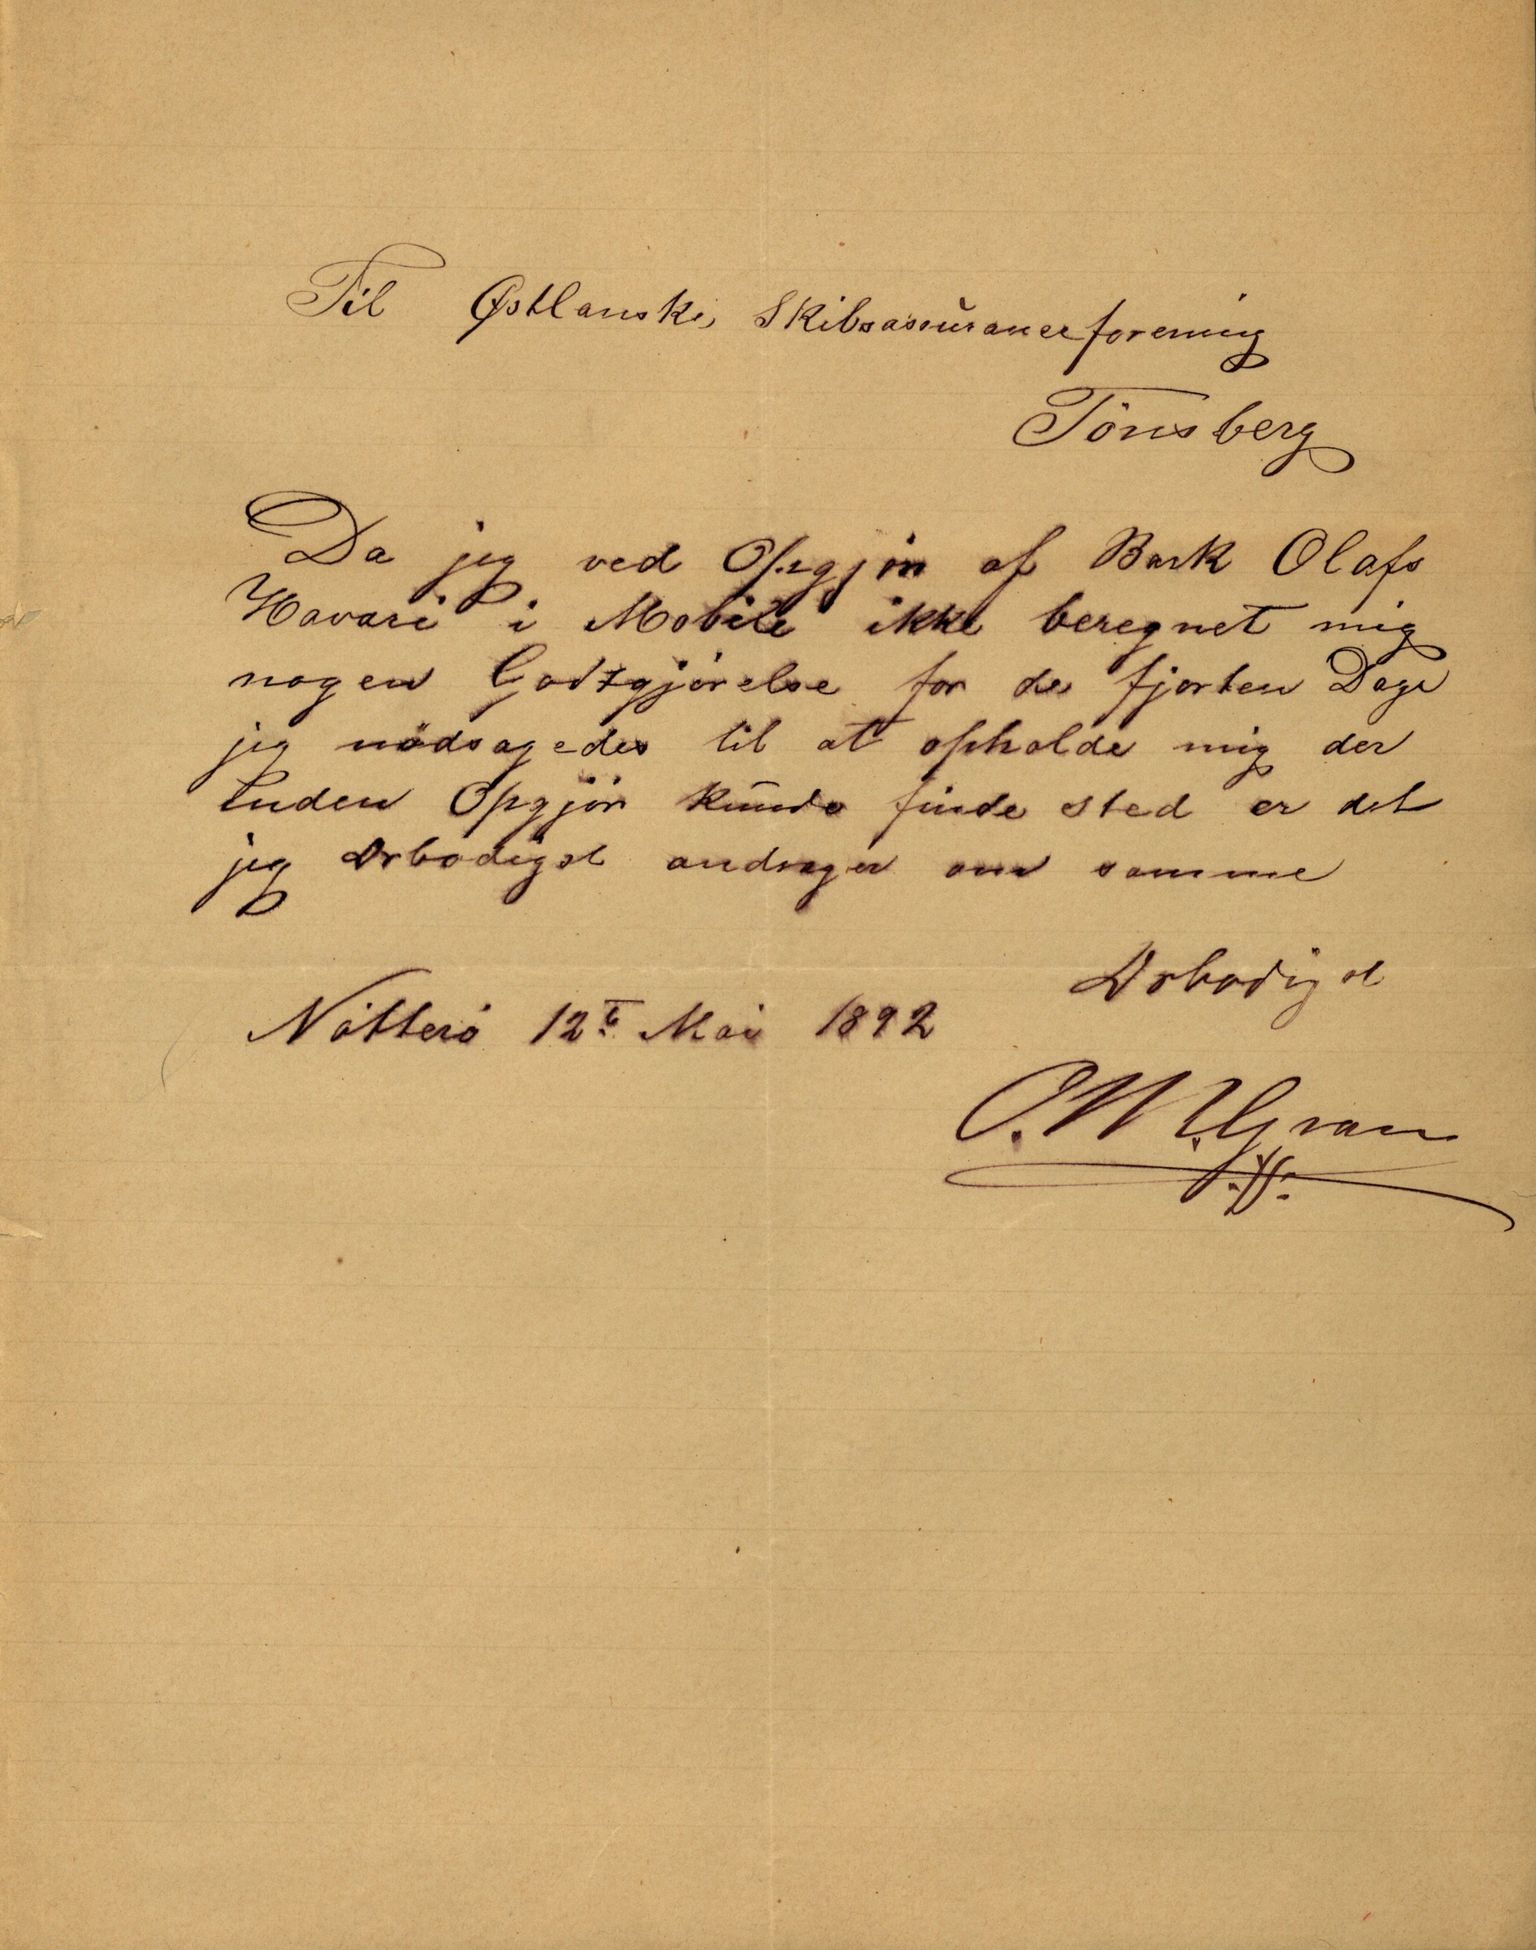 Til Østlanske Skibsassuranceforening
Tönsberg
Da jeg ved Opgjör af Bark Olafs
Havari i Mobile ikke beregnet mig
nogen Godtgjörelse for de fjorten Dage
jeg nödsagedes til at opholde mig der
inden Opgjör kunde finde sted er det
jeg Ærbödigst andrager om samme
Ærbödigst
Nötterö 12te Mai 1892
O. M. Gran